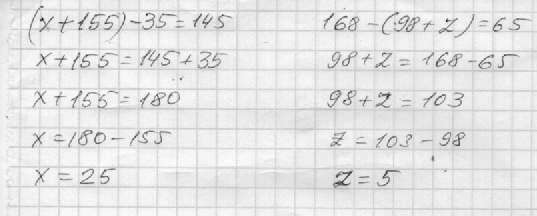 (x+155)-35=145
x+155=145+35
x+155=180
x=180-155
x=25
168-(98+z)=65
98+z=168-65
98+z=103
z=103-98
z=5